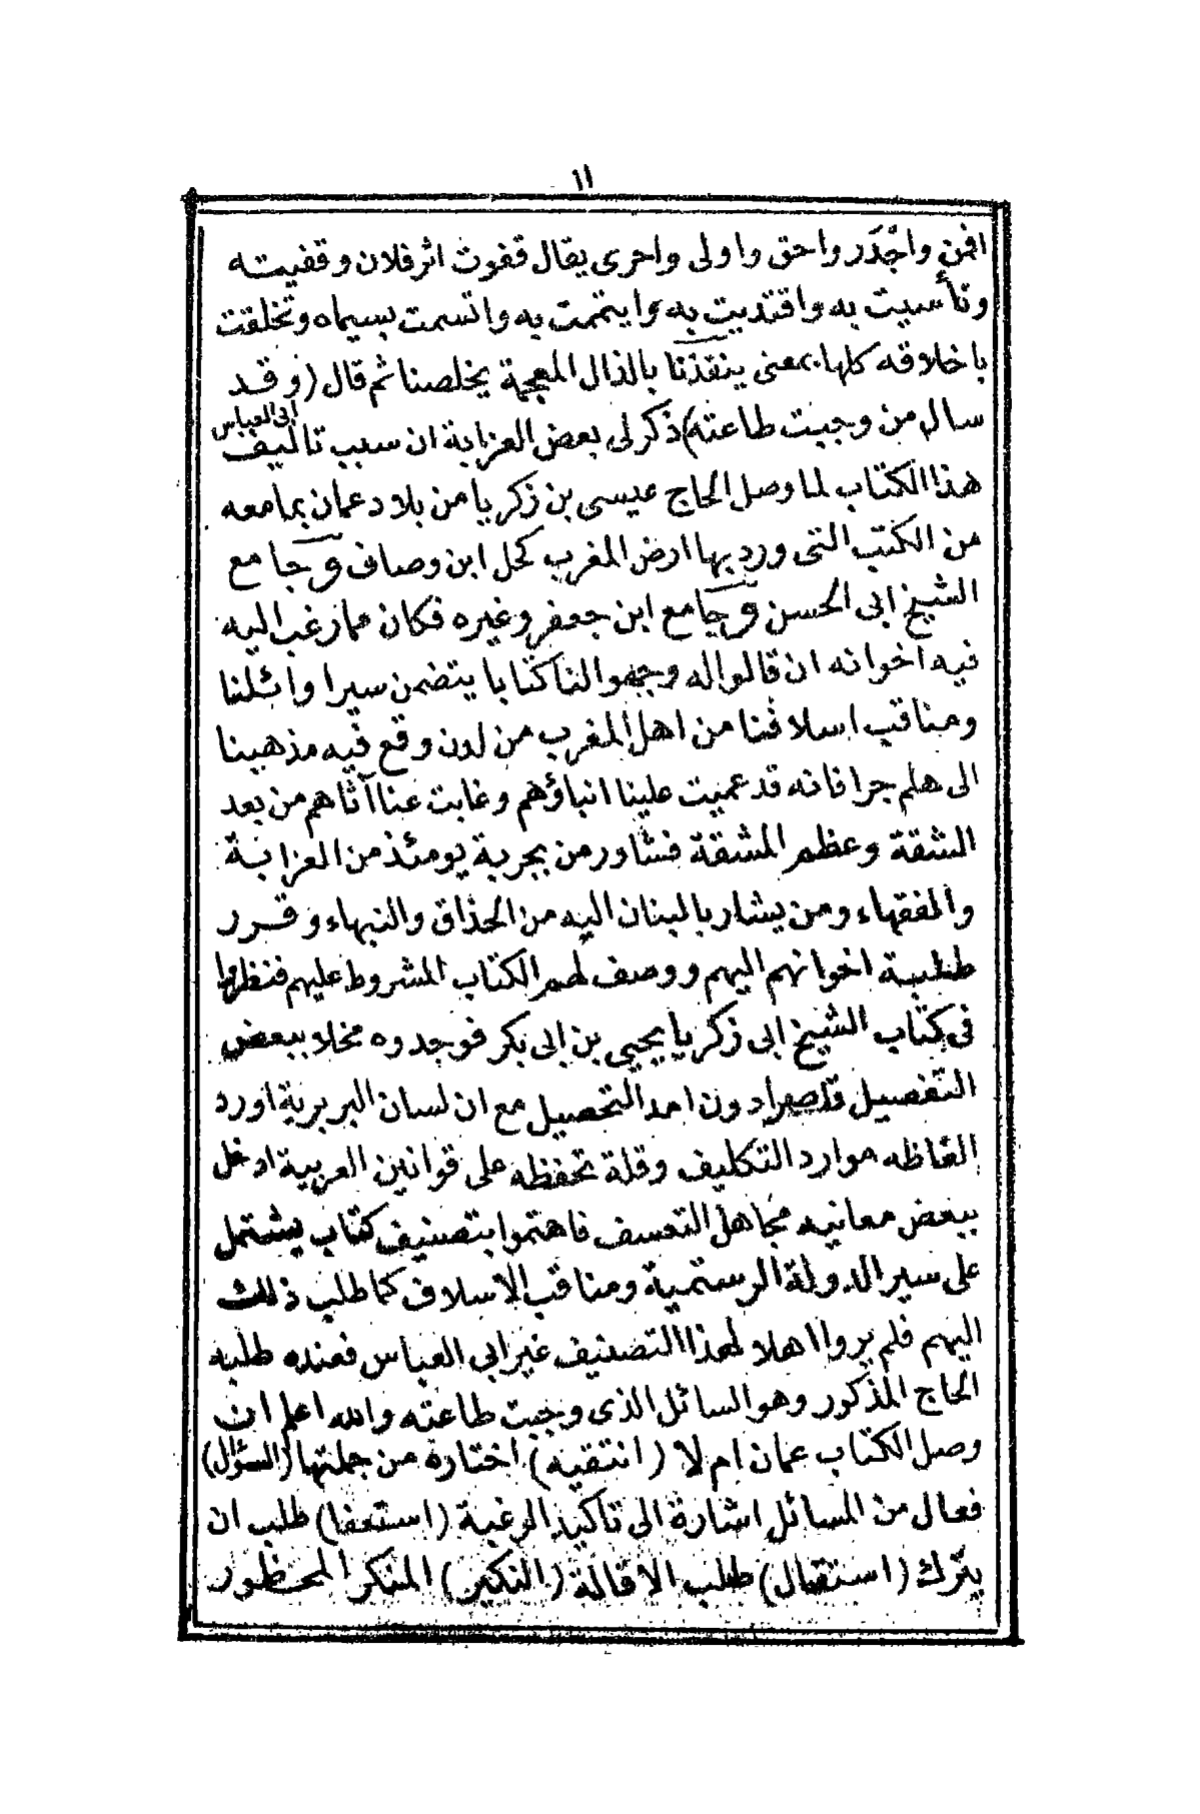 ١١
اقمن واجدر واحق واولى واحرى يقال قفوت اثر فلان وقفيته
وتأسيت به واقتديت به وايتممت به واتسمت بسيماه وتخلقت
باخلاقه كلها بمعنى ينقذنا بالذال المعجمة يخلصنا ثم قال (وقد
سال من وجبت طاعته) ذكر لى بعض العزابة ان سبب تاليف ابى العباس
هذا الكتاب لما وصل الحاج عيسى بن زكريا من بلاد عمان بما معه
من الكتب التى ورد بها ارض المغرب ككحل ابن وصاف وجامع
الشيخ ابى الحسن وجامع ابن جعفر وغيره فكان مما رغب اليه
فيه اخوانه ان قالوا له وجهوا لنا كتابا يتضمن سير اوائلنا
ومناقب اسلافنا من اهل المغرب من لدن وقع فيه مذهبنا
الى هلم جرا فانه قد عميت علينا انباؤهم وغابت عنا آثاهم من بعد
الشقة وعظم المشقة فشاور من بجربة يومئذ من العزابة
والفقهاء ومن يشار بالبنان اليه من الحذاق والنبهاء وقرر
طلبة اخوانهم اليهم ووصف لهم الكتاب المشروط عليهم فنظروا
فى كتاب الشيخ ابى زكريا يحيى بن ابى بكر فوجدوه مخلا ببعض
التفصيل قاصرا دون امد التحصيل مع ان لسان البربرية اورد
الفاظه موارد التكليف وقلة تحفظه على قوانين العربية ادخل
ببعض معانيه مجاهل التعسف فاهتموا بتصنيف كتاب يشتمل
على سير الدولة الرستمية ومناقب الاسلاف كما طلب ذلك
اليهم فلم يروا اهلا لهذا التصنيف غير ابى العباس فعنده طلبه
الحاج المذكور وهو السائل الذى وجبت طاعته والله اعلم ان
وصل الكتاب عمان ام لا (انتقيه) اختاره من جملتها (السؤال)
فعال من المسائل اشارة الى تاكيد الرغبة (استعفا) طلب ان
يترك (استقال) طلب الاقالة (النكير) المنكر المحظور